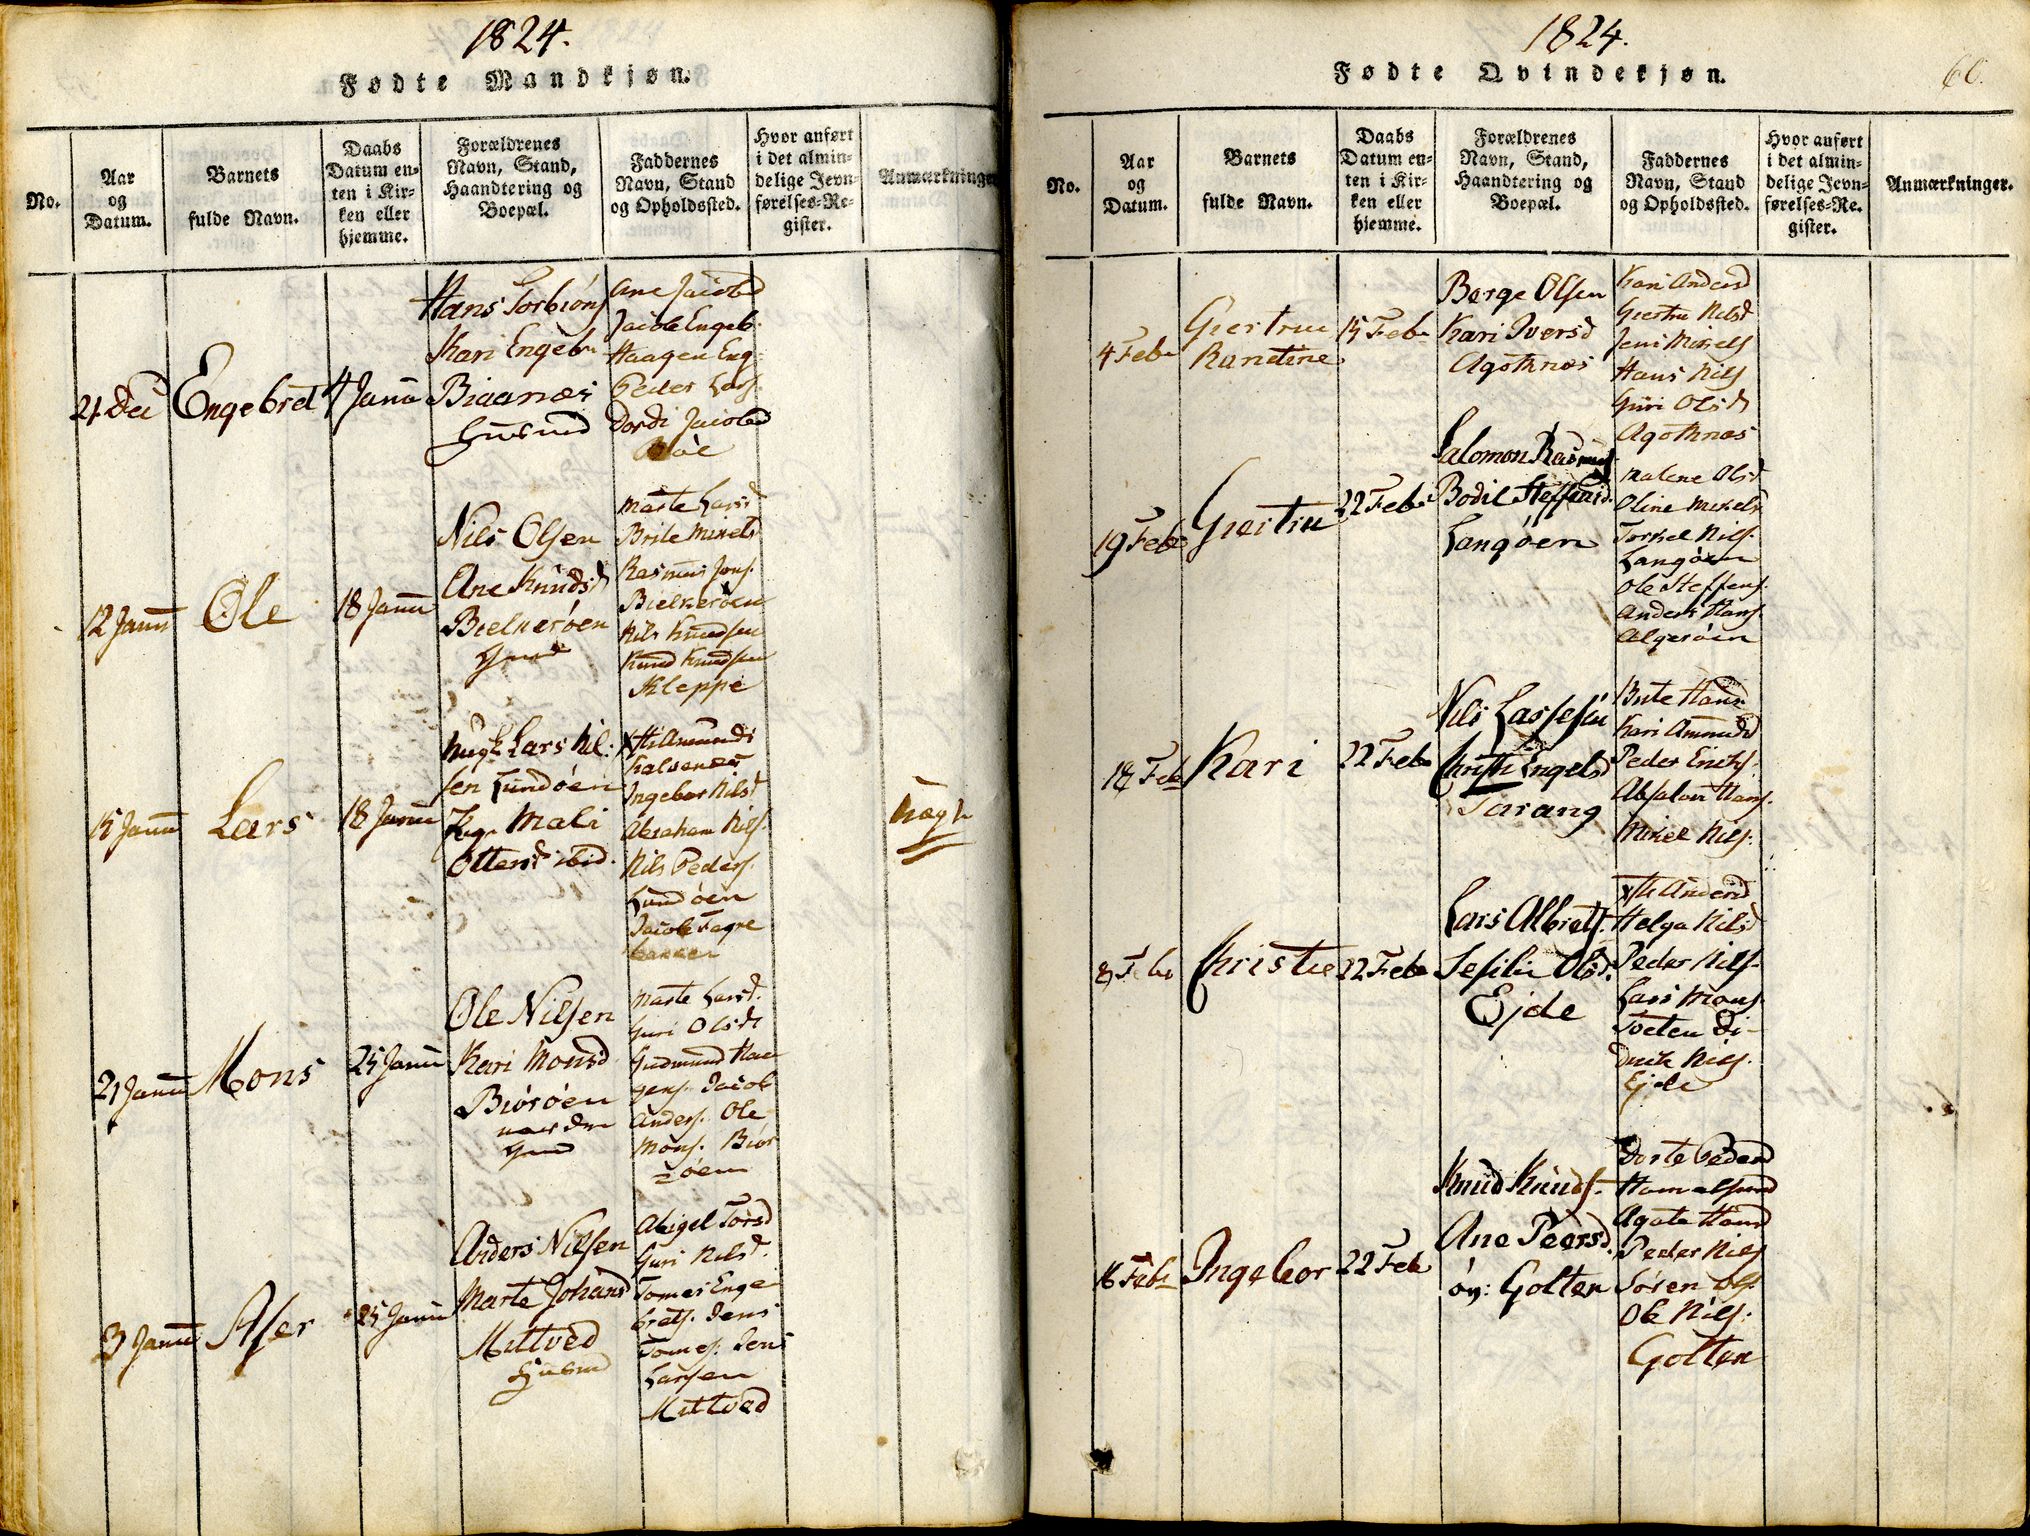 1824.
Fødte Mandkjøn.
No.
Aar
og
Datum.
Barnets
fulde Navn.
Daabs
Datum en-
ten i Kir-
ken eller
hjemme.
Forældrenes
Navn, Stand,
Haandtering og
Boepæl.
Faddernes
Navn, Stand
og Opholdssted.
Hvor anført
i det almin-
delige Jevn-
førelses-Re-
gister.
Anmærkninger
21 Dec
Engebret
4 Janu
Hans Torbiøns
Kari Engeb
Biaanæs
Ane Jacobsd
Jacob Engeb.
Haagen Eng
Peder Lars.
Dordi Jacobsd
Bøe
12 Janu
Ole
18 Janu
Nils Olsen
Ane Knudsd
Bielkerøen
Marte Larsd
Brite Mikelsd
Rasmus Jons.
Bielkerøen
Nils Knudsen
Knud Knudsen
Kleppe
15 Janu
Lars
18 Janu
Ungk. Lars Nil-
sen Lundøen
Pig. Mali
Ottersd ibid.
Kalvenes
Ingebor Nilsd
Abraham Nils.
Nils Peders.
Lundøen
Jacob Fagre
backen
Uægte
21 Janu
Mons
25 Janu
Ole Nilsen
Kari Monsd
Biørøen
Marte Larsd.
Guri Olsd
Gudmund Haa
gens. Jacob
Anders. Ole
Mons. Biør
røen
3 Janu
Aser
25 Janu
Anders Nilsen
Marte Johansd
Mittved
Abigel Torsd
Guri Nilsd.
Tomes Enge
brets. Jens
Tomes. Jens
Larsen
Mittved
1824.
Fødte Qvindekjøn.
60.
No.
Aar
og
Datum.
Barnets
fulde Navn.
Daabs
Datum en-
ten i Kir-
ken eller
hjemme.
Forældrenes
Navn, Stand,
Haandtering og
Boepæl.
Faddernes
Navn, Stand
og Opholdssted.
Hvor anført
i det almin-
delige Jevn-
førelses-Re-
gister.
Anmærkninger.
4 Feb
Giertru
Randine
15 Feb
Børge Olsen
Kari Iversd
Agothnæs
Kari Andersd
Giertru Nilsd
Jens Mikels
Hans Nils
Guri Olsd
Agothnæs
19 Feb
Giertru
22 Feb
Salomon Rasmus
Bodil Steffensd.
Langøen
Malene Olsd
Oline Mikelsd
Torkel Nils.
Langøen
Ole Steffens.
Anders Hans.
Algerøen
18 Feb
Kari
22 Feb
Nils Lassesen
Christi Engelsd
Tarang
Brite Hansd
Kari Ammundsd
Peder Erichs.
Absalon Hans.
Mikel Nils.
8 Feb
Christie
22 Feb
Lars Albrets.
Sesilie Olsd.
Ejde
Andersd
Helga Nilsd
Peder Nils.
Lars Mons.
Toften Di-
drich Nils.
Ejde
16 Feb
Ingebor
22 Feb
Knud Knuds.
Ane Peersd.
øv: Golten
Dorte Pedersd
Hammelsund
Agate Hansd
Peder Nils
Søren Ols.
Ole Nils.
Golten